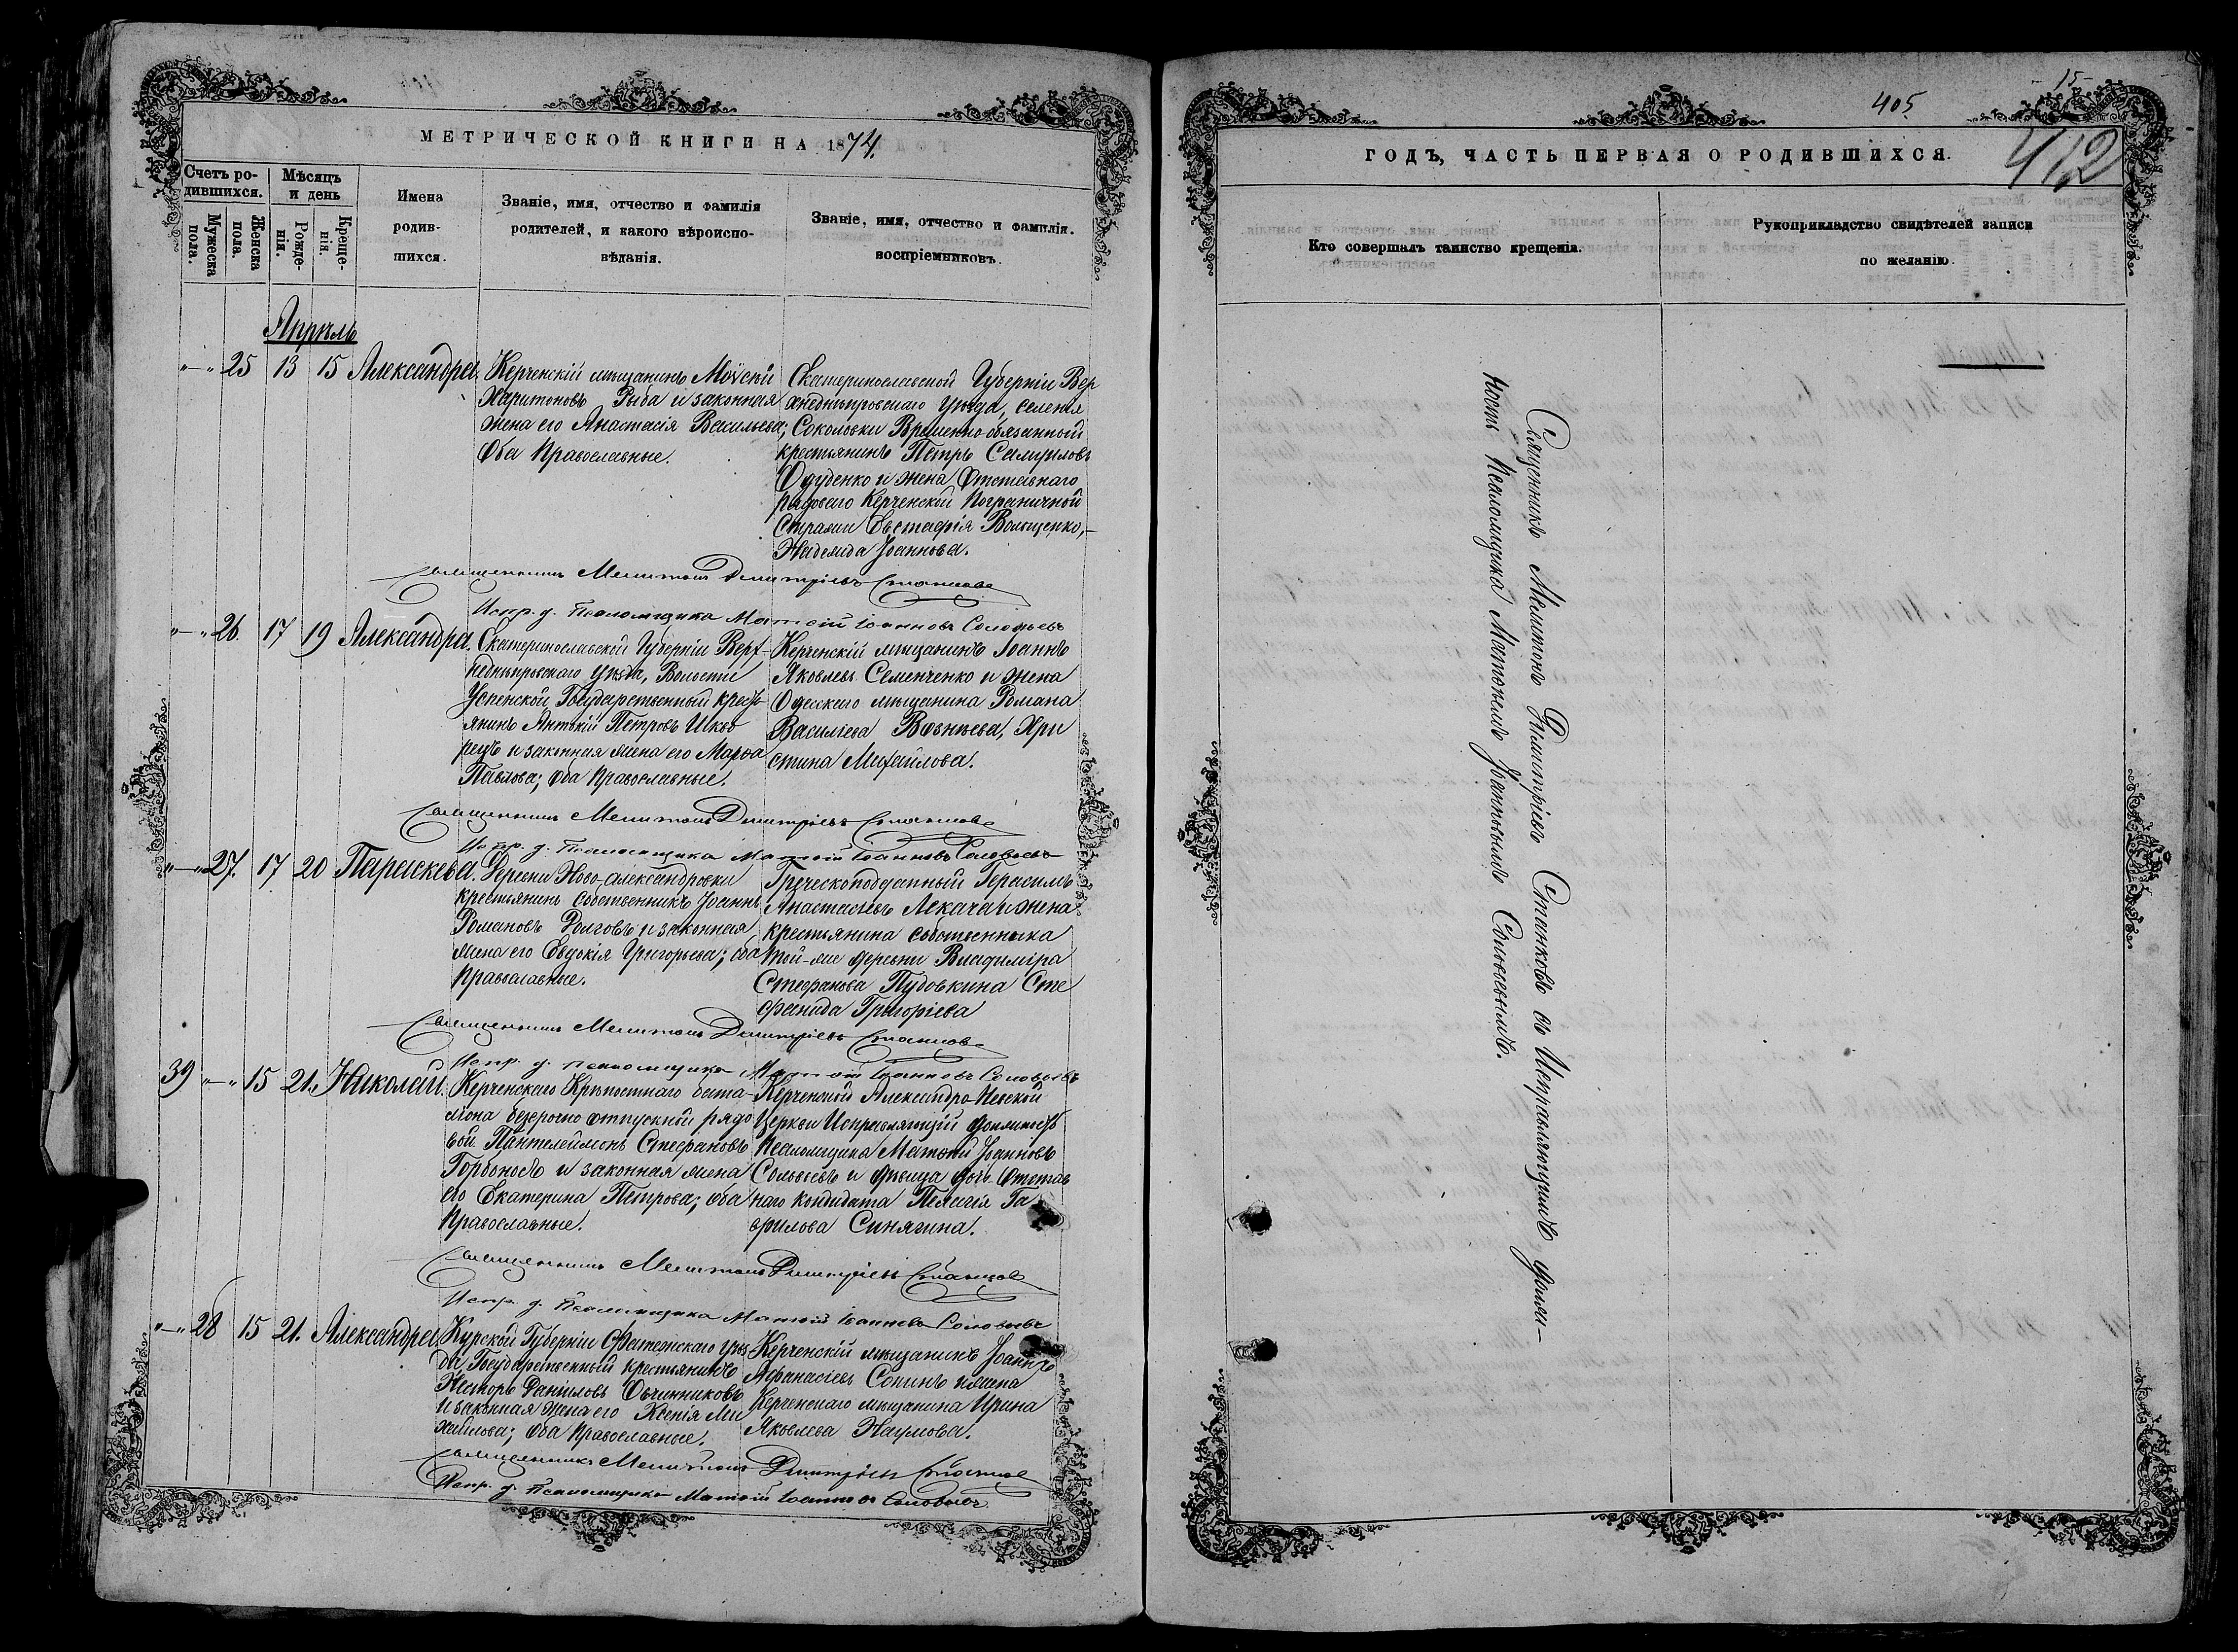 МЕТРИЧЕСКОЙ КНИГИ НА 1874.
Счетъ ро-
дившихся.
Мужеска
пола.
Женска
пола.
Мѣсяцъ
и день
Рожде-
нія.
Креще-
нія.
Имена
родив-
шихся.
Званіе, имя, отчество и фамилія
родителей, и какого вѣроиспо-
вѣданія.
Званіе, имя, отчество и фамилія.
воспріемниковъ.
Апрѣль
"—" 25 13 15 Александра
Керченскій мѣщанинъ Моѵсій
Харитоновъ Рыба и законная
жена его Анастасія Васильева;
Оба Православные.
Екатеринославской Губерніи Вер
хнеднѣпровскаго уѣзда, селенія
Соколовки Временно-обязанный
крестьянинъ Петръ
и жена Отставнаго
рядоваго Керченской Пограничной
Стражи Евстафія Волощенко,
Надежда Іоаннова.
Священникъ Мелитонъ Димитріевъ Станковъ
Испр. д. Псаломщика Матѳій Іоанновъ Соловьевъ
"—" 26. 17 19 Александра.
Екатеринославской Губерніи Верх-
неднѣпровскаго уѣзда, Волости
Успенской, Государственный кресть-
янинъ Антоній Петровъ Шкво
рецъ и законная жена его Марѳа
Павлова; Оба Православные.
Керченскій мѣщанинъ Іоаннъ
Яковлевъ Семенченко и жена
Одесскаго мѣщанина Романа
Васильева Хри
стина Михайлова.
Священникъ Мелитонъ Димитріевъ Станковъ
Испр. д. Псаломщика Матѳій Іоанновъ Соловьевъ
"—" 27. 17 20 Параскева.
Деревни Ново-александровки
крестьянинъ собственникъ Іоаннъ
Романовъ Долговъ и законная
жена его Евдокія Григорьева; оба
Православные.
Греческоподданный Герасимъ
Анастасіевъ Лекача и жена
крестьянина собственника
той-же деревни Владиміра
Стефанова Пудовкина Сте
фанида Григоріева
Священникъ Мелитонъ Димитріевъ Станковъ
Испр. д. Псаломщика Матѳій Іоанновъ Соловьевъ
39 "—" 15 21. Николай.
Керченскаго Крѣпостнаго бата-
ліона безсрочно отпускной рядо
вой Пантелеймонъ Стефановъ
Горбоносъ и законная жена
его Екатерина Петрова; оба
Православные.
Керченской Александро-Невской
Церкви Исправляющій должность
Псаломщика Матѳій Іоанновъ
Соловьевъ и дѣвица дочь Отстав
наго кондидата Пелагія Га
врилова Синягина.
Священникъ Мелитонъ Димитріевъ Станковъ
Испр. д. Псаломщика Матѳій Іоанновъ Соловьевъ
"—" 28 15 21. Александра
Курской Губерніи Фатежскаго уѣз
да Государственный крестьянинъ
Несторъ Даніиловъ Овчинниковъ
и законная жена его Ксенія Ми
хайлова; Оба Православные.
Керченскій мѣщанинъ Іоаннъ
Афанасіевъ Сопинъ и жена
Керченскаго мѣщанина Ирина
Яковлева Наумова.
Священникъ Мелитонъ Димитріевъ Станковъ
Испр. д. Псаломщика Матѳій Іоанновъ Соловьевъ
15
405
412
ГОДЪ, ЧАСТЬ ПЕРВАЯ О РОДИВШИХСЯ.
Кто совершалъ таинство крещенія.
Рукоприкладство свидѣтелей записи
по желанію.
Священникъ Мелитонъ Димитріевъ Станковъ съ Исправляющимъ должн-
ность Псаломщика Матѳіемъ Іоанновымъ Соловьевымъ.